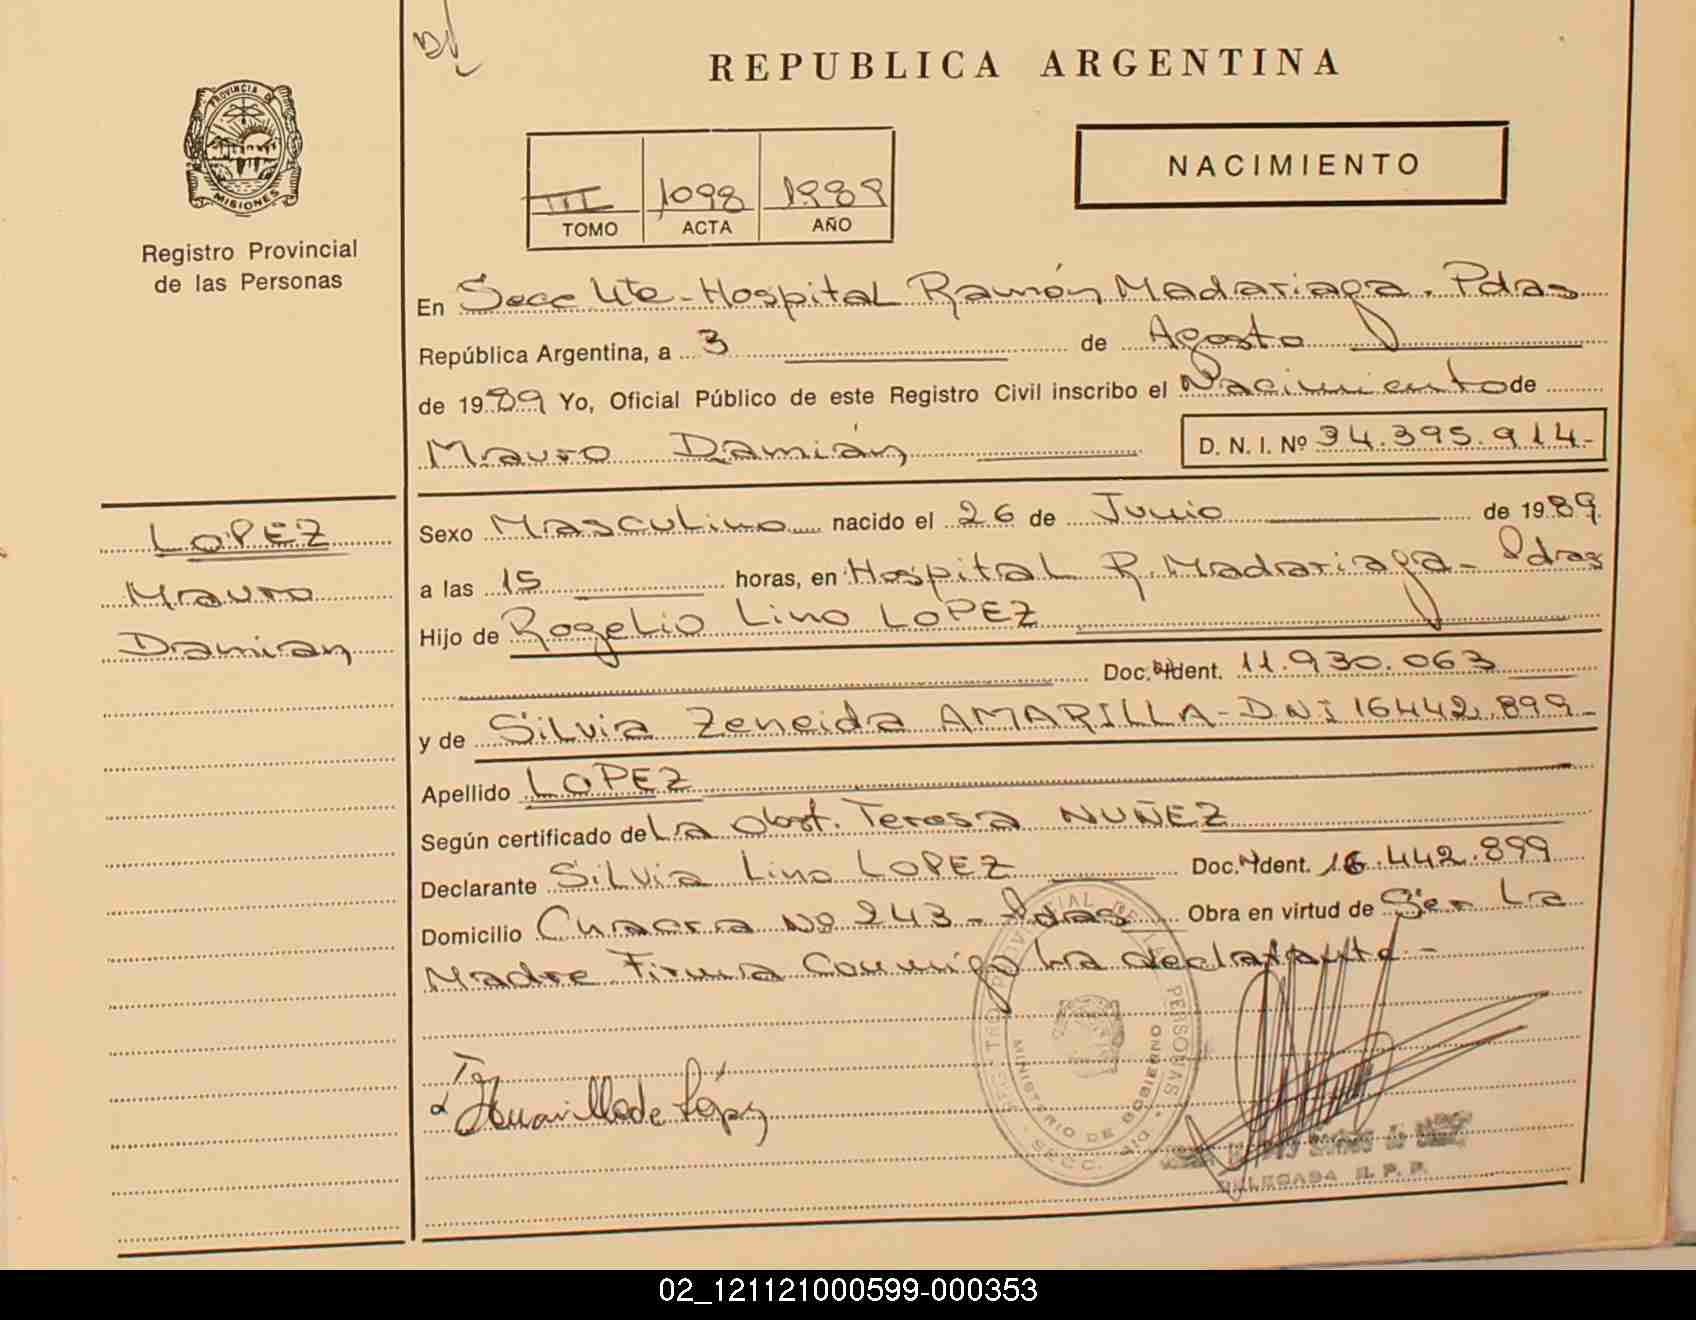 REPUBLICA ARGENTINA
PROVINCIA DE
MISIONES
Registro Provincial
de las Personas
III 1098 1989
TOMO ACTA AÑO
NACIMIENTO
En Secc 4ta - Hospital Ramón Madariaga. Pdas
República Argentina, a 3 de Agosto
de 1989 Yo, Oficial Público de este Registro Civil inscribo el Nacimiento de
Mauro Damián D. N. I. Nº 34.395.914-
LOPEZ
Mauro
Damian
Sexo Masculino nacido el 26 de Junio de 1989
a las 15 horas, en Hospital R. Madariaga - Pdas
Hijo de Rogelio Lino LOPEZ
Doc. Ident. 11.930.063
y de Silvia Zeneida AMARILLA - DNI 16442.899-
Apellido LOPEZ
Según certificado de La Obst. Teresa NUÑEZ
Declarante Silvia Lino LOPEZ Doc. Ident. 16.442.899
Domicilio Chacra Nº 243 - Pdas Obra en virtud de Ser La
Madre Firma Conmigo La declarante -
PROVINCIAL DE PERSONAS
MINISTERIO DE GOBIERNO
SECC.
de López
DELEGADA R. P. P.
02_121121000599-000353